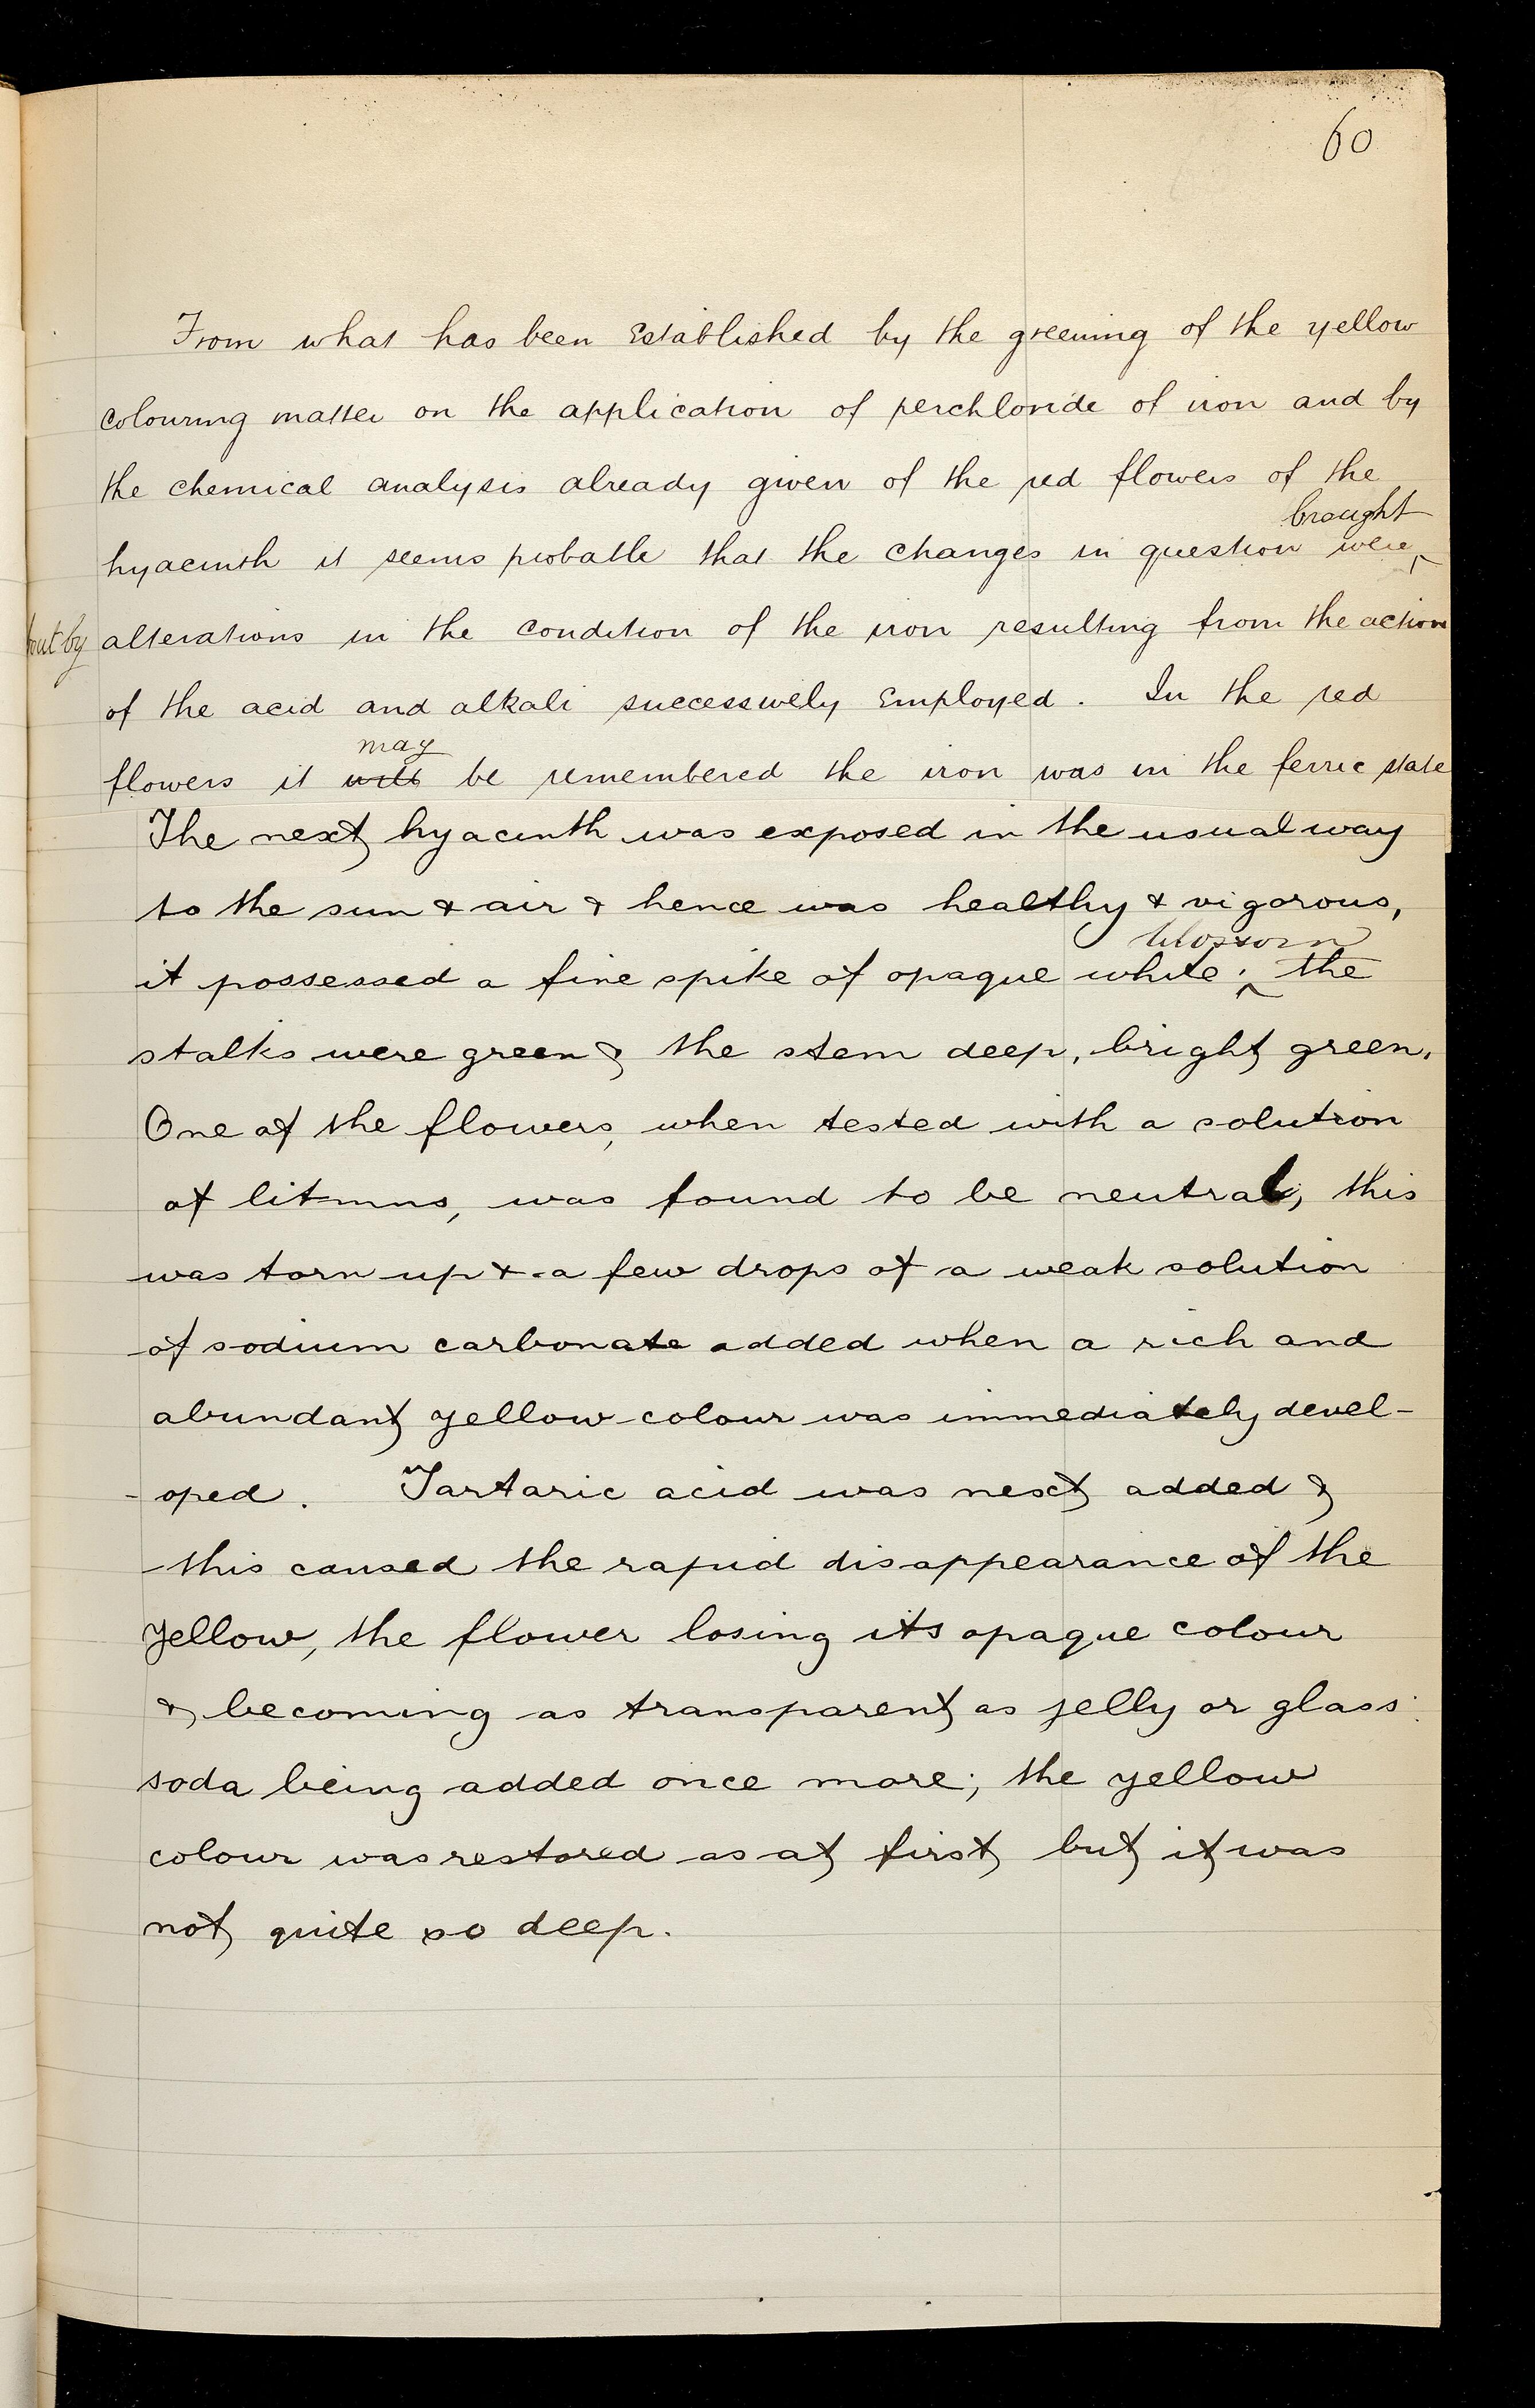 60
From what has been Established by the greening of the yellow
colouring matter on the application of perchloride of iron and by
the chemical analysis already given of the red flowers of the
brought
hyacinth it seems probable that the changes in question were
out by alterations in the condition of the iron resulting from the action
of the acid and alkali successively Employed. In the red
may
flowers it will be remembered the iron was in the ferric state
The next hyacinth was exposed in the usual way
to the sun & air & hence was healthy & vigorous,
blossom
it possessed a fine spike of opaque white; the
stalks were green & the stem deep, bright green.
One of the flowers, when tested with a solution
of litmus, was found to be neutral, this
was torn up & a few drops of a weak solution
of sodium carbonate added when a rich and
abundant yellow colour was immediately devel-
-oped. Tartaric acid was next added &
this caused the rapid disappearance of the
yellow, the flower losing its opaque colour
& becoming as transparent as jelly or glass:
soda being added once more; the yellow
colour was restored as at first but it was
not quite so deep.